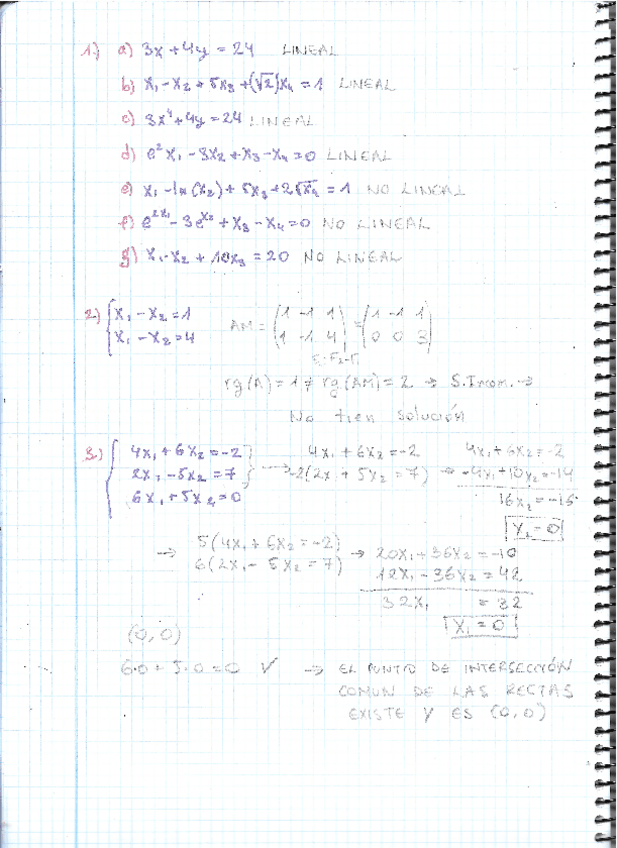 1) a) 3x + 4y = 24 LINEAL
b) x₁ - x₂ + 5x₃ + (√2)x₄ = 1 LINEAL
c) 3x⁴ + 4y = 24 LINEAL
d) e² x₁ - 3x₂ + x₃ - x₄ = 0 LINEAL
e) x₁ - ln(x₂) + 5x₃ + 2√x₄ = 1 NO LINEAL
f) e^(2x₁) - 3e^(x₂) + x₃ - x₄ = 0 NO LINEAL
g) x₁ - x₂ + 10x₃ = 20 NO LINEAL
2) { x₁ - x₂ = 1 AM = (1 -1 1) = (1 -1 1)
x₁ - x₂ = 4 (1 -1 4) (0 0 3)
rg(A) = 1 ≠ rg(AM) = 2 → S. Incom. →
No tien solución
3) { 4x₁ + 6x₂ = -2 4x₁ + 6x₂ = -2 4x₁ + 6x₂ = -2
2x₁ - 5x₂ = 7 → -2(2x₁ + 5x₂ = 7) → -4x₁ + 10x₂ = -14
6x₁ + 5x₂ = 0 16x₂ = -16
x₂ = 0
→ 5(4x₁ + 6x₂ = -2) → 20x₁ + 36x₂ = -10
6(2x₁ - 5x₂ = 7) 12x₁ - 36x₂ = 42
32x₁ = 32
x₁ = 0
(0,0)
6·0 + 5·0 = 0 ✓ → EL PUNTO DE INTERSECCIÓN
COMUN DE LAS RECTAS
EXISTE Y ES (0,0)